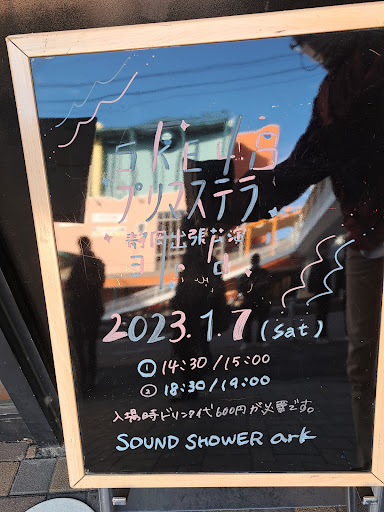 SKE48
プリマステラ
静岡出張公演
2023.1.7 (sat)
① 14:30 / 15:00
② 18:30 / 19:00
入場時ドリンク代600円が必要です。
SOUND SHOWER ark